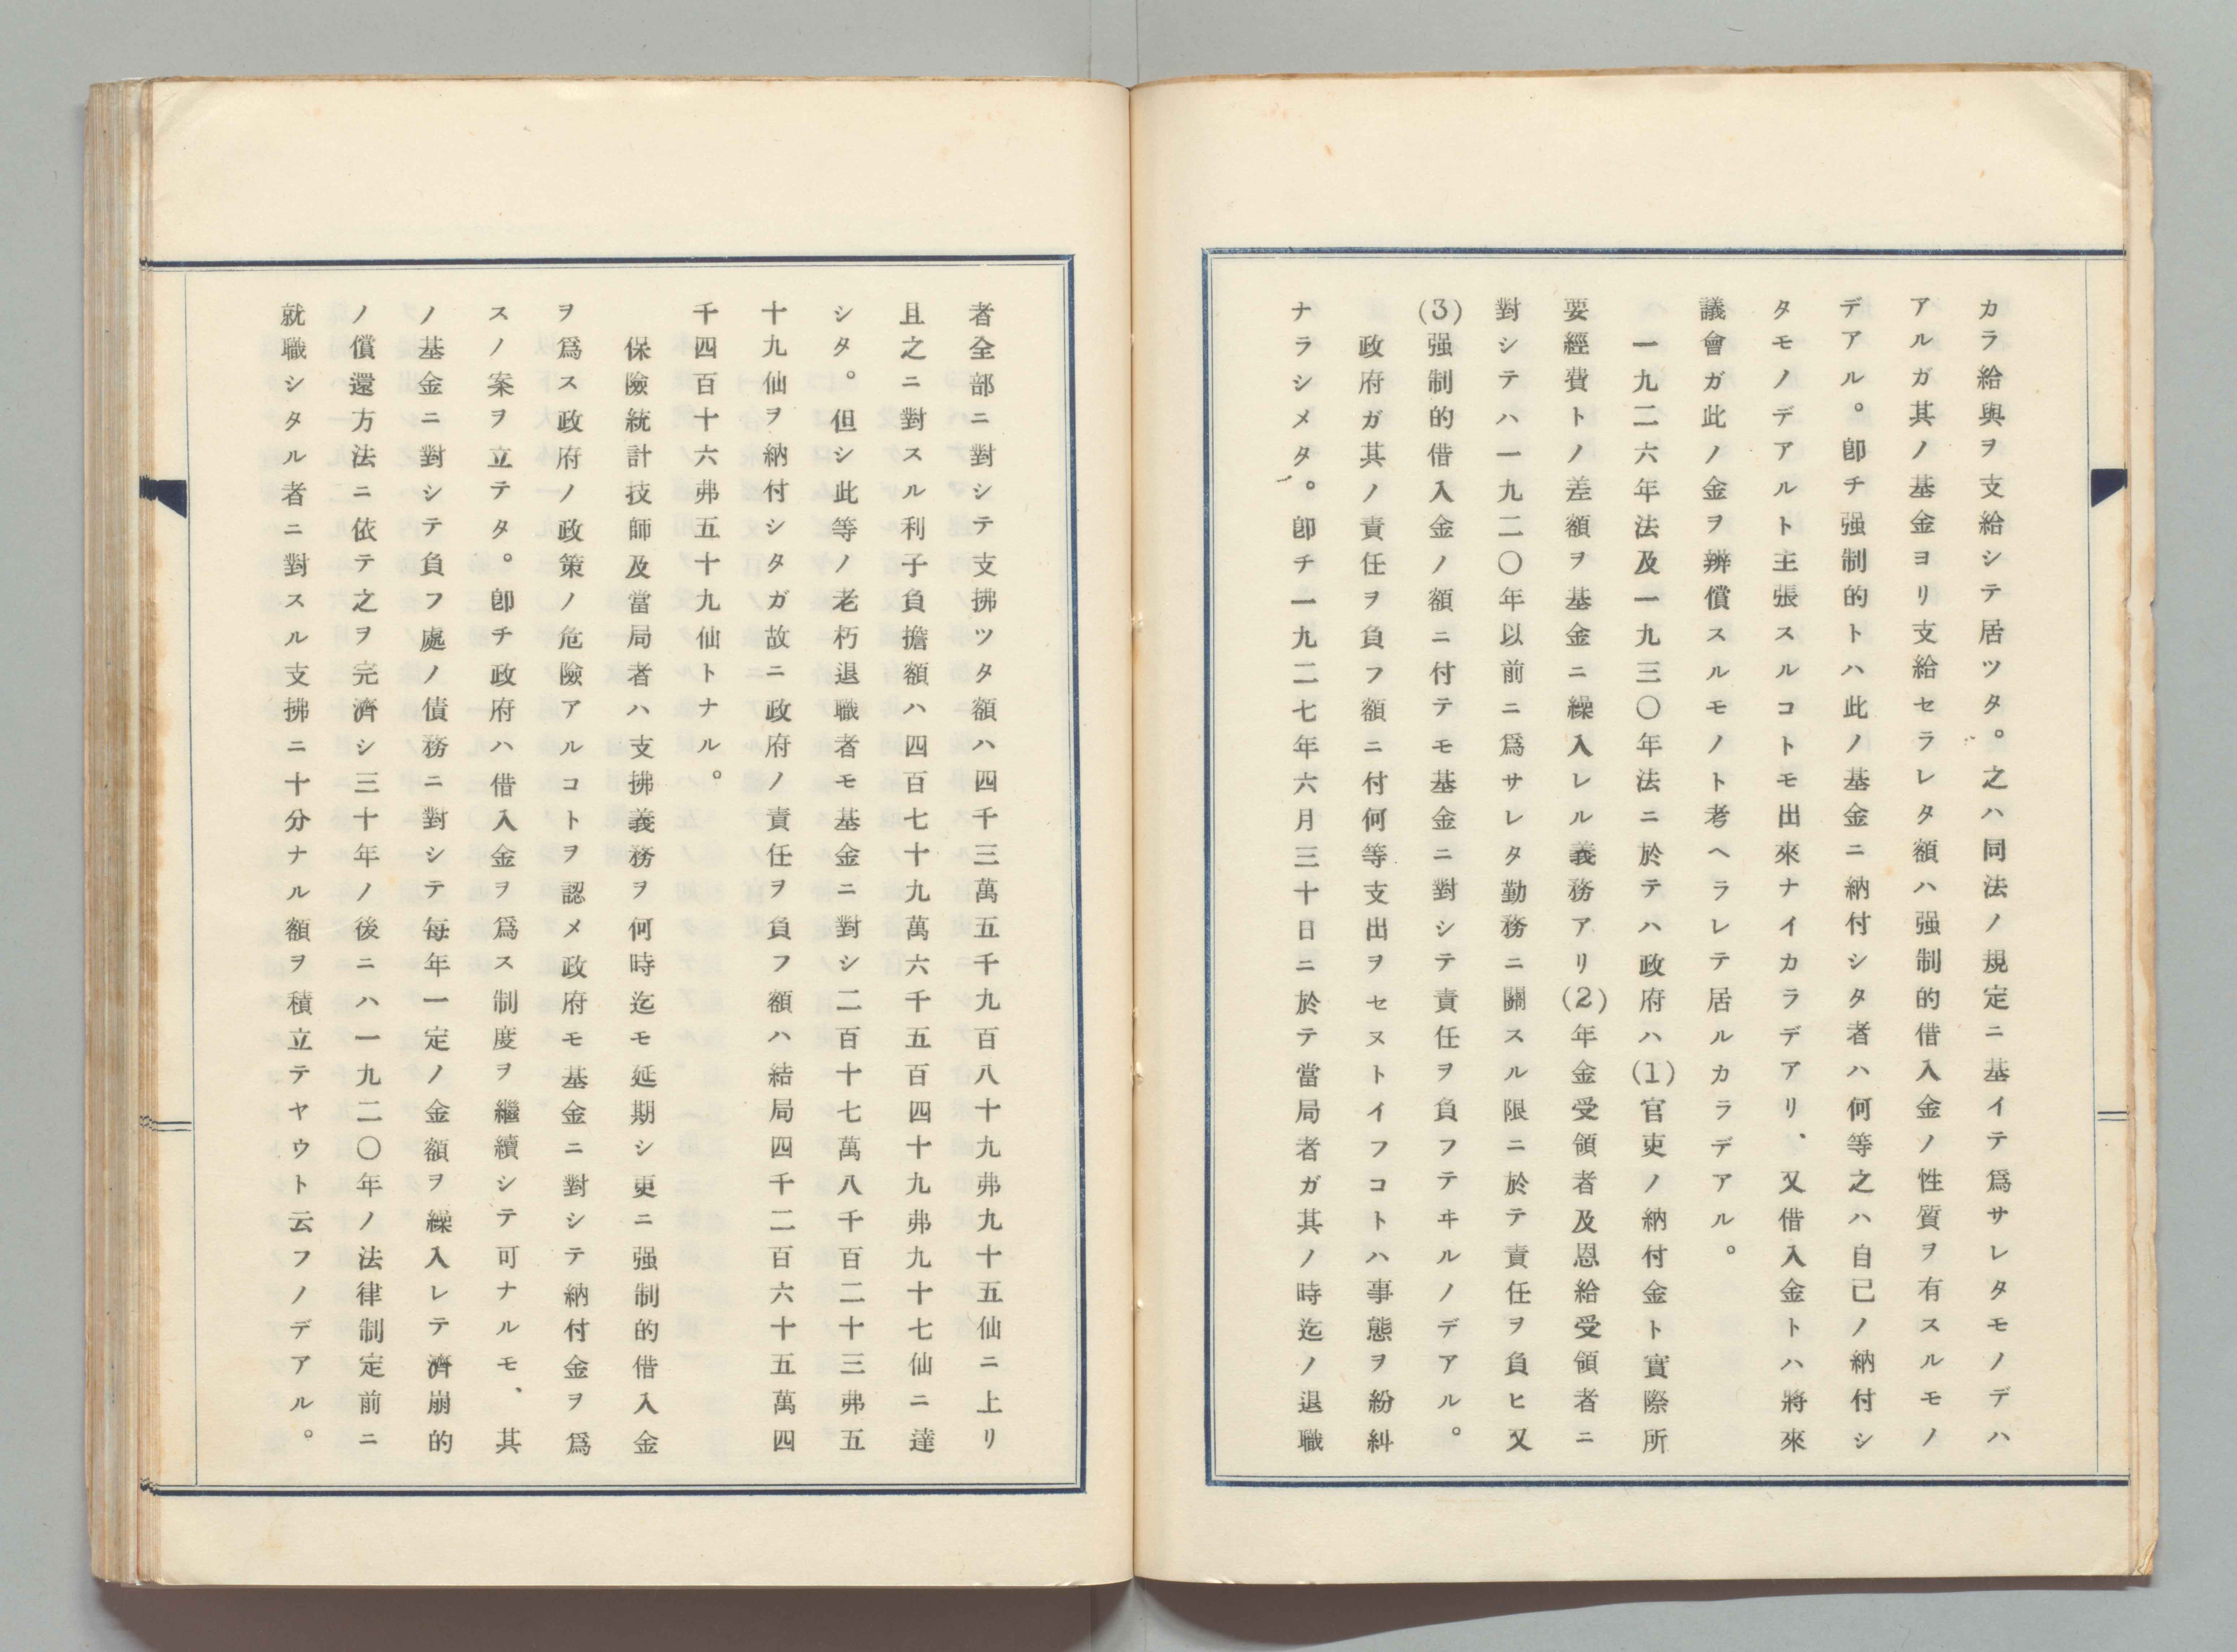 カラ給與ヲ支給シテ居ツタ。之ハ同法ノ規定ニ基イテ爲サレタモノデハ
アルガ其ノ基金ヨリ支給セラレタ額ハ强制的借入金ノ性質ヲ有スルモノ
デアル。卽チ强制的トハ此ノ基金ニ納付シタ者ハ何等之ハ自己ノ納付シ
タモノデアルト主張スルコトモ出來ナイカラデアリ、又借入金トハ將來
議會ガ此ノ金ヲ辨償スルモノト考ヘラレテ居ルカラデアル。
一九二六年法及一九三〇年法ニ於テハ政府ハ(1)官吏ノ納付金ト實際所
要經費トノ差額ヲ基金ニ繰入レル義務アリ(2)年金受領者及恩給受領者ニ
對シテハ一九二〇年以前ニ爲サレタ勤務ニ關スル限ニ於テ責任ヲ負ヒ又
(3)强制的借入金ノ額ニ付テモ基金ニ對シテ責任ヲ負フテヰルノデアル。
政府ガ其ノ責任ヲ負フ額ニ付何等支出ヲセヌトイフコトハ事態ヲ紛糾
ナラシメタ。卽チ一九二七年六月三十日ニ於テ當局者ガ其ノ時迄ノ退職
者全部ニ對シテ支拂ツタ額ハ四千三萬五千九百八十九弗九十五仙ニ上リ
且之ニ對スル利子負擔額ハ四百七十九萬六千五百四十九弗九十七仙ニ達
シタ。但シ此等ノ老朽退職者モ基金ニ對シ二百十七萬八千百二十三弗五
十九仙ヲ納付シタガ故ニ政府ノ責任ヲ負フ額ハ結局四千二百六十五萬四
千四百十六弗五十九仙トナル。
保險統計技師及當局者ハ支拂義務ヲ何時迄モ延期シ更ニ强制的借入金
ヲ爲ス政府ノ政策ノ危險アルコトヲ認メ政府モ基金ニ對シテ納付金ヲ爲
スノ案ヲ立テタ。卽チ政府ハ借入金ヲ爲ス制度ヲ繼續シテ可ナルモ、其
ノ基金ニ對シテ負フ處ノ債務ニ對シテ每年一定ノ金額ヲ繰入レテ濟崩的
ノ償還方法ニ依テ之ヲ完濟シ三十年ノ後ニハ一九二〇年ノ法律制定前ニ
就職シタル者ニ對スル支拂ニ十分ナル額ヲ積立テヤウト云フノデアル。